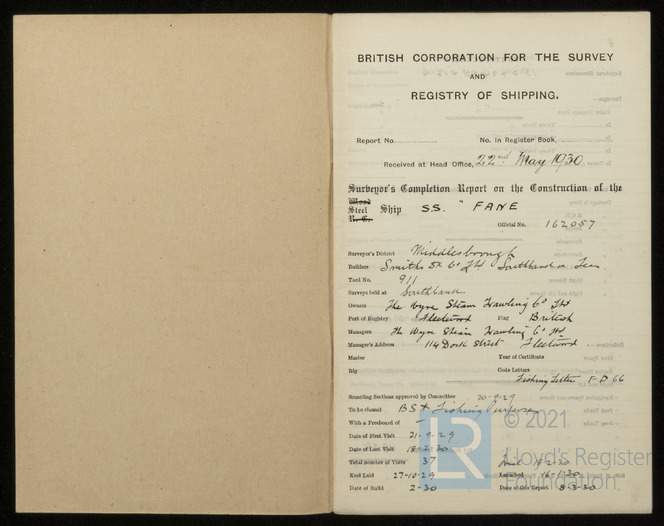 BRITISH CORPORATION FOR THE SURVEY
AND
REGISTRY OF SHIPPING.
Report No. No. in Register Book,
Received at Head Office, 22nd May 1930
Surveyor's Completion Report on the Construction of the
Wood
Steel Ship S.S. "FANE
R. C.
Official No. 162057
Surveyor's District Middlesbrough
Builders Smiths Dk Co Ltd Southbank on Tees
Yard No. 911
Surveys held at Southbank
Owners The Wyre Steam Trawling Co Ltd
Port of Registry Fleetwood Flag British
Managers The Wyre Steam Trawling Co Ltd
Manager's Address 114 Dock Street Fleetwood.
Master Year of Certificate
Rig Code Letters
Fishing Letter F D 66
Scantling Sections approved by Committee 20-9-29
To be classed BS* Fishing Purposes
With a Freeboard of -
Date of First Visit 21-9-29
Date of Last Visit 18-2-30
Total number of Visits 37
Keel Laid 27-10-29 Launched 16-1-30
Date of Build 2-30 Date of this Report 8-3-30
© 2021
LR
Lloyd's Register
Foundation